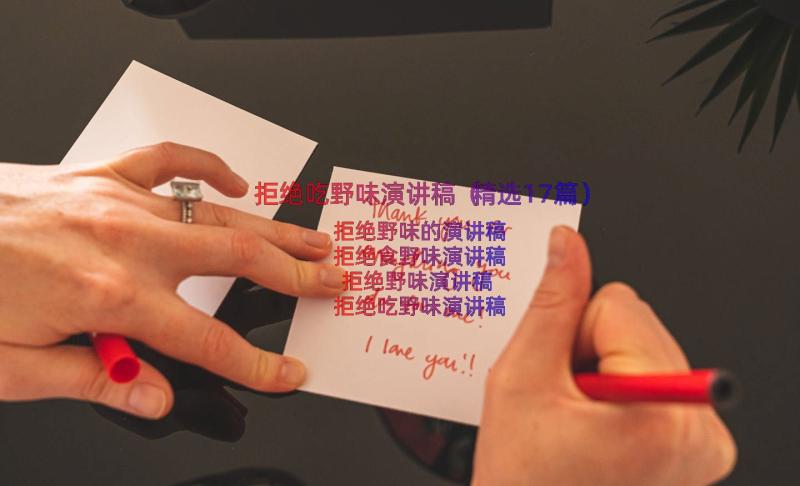 拒绝吃野味演讲稿（精选17篇）
Thank you for
拒绝野味的演讲稿
you
拒绝食野味演讲稿
拒绝野味演讲稿
me!
拒绝吃野味演讲稿
I love you!!